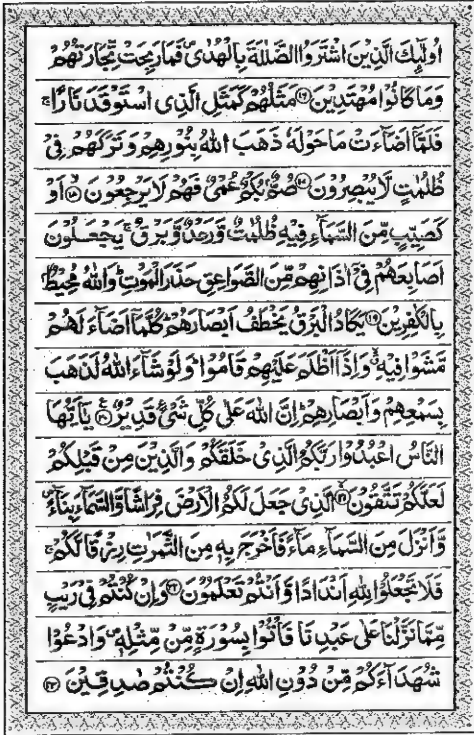 اُولٰٓئِكَ الَّذِيْنَ اشْتَرَوُا الضَّلٰلَةَ بِالْهُدٰى ۪ فَمَا رَبِحَتْ تِّجَارَتُهُمْ
وَمَا كَانُوْا مُهْتَدِيْنَ ۝۱۶ مَثَلُهُمْ كَمَثَلِ الَّذِى اسْتَوْقَدَ نَارًا ۚ
فَلَمَّآ اَضَآءَتْ مَا حَوْلَهٗ ذَهَبَ اللّٰهُ بِنُوْرِهِمْ وَتَرَكَهُمْ فِىْ
ظُلُمٰتٍ لَّا يُبْصِرُوْنَ ۝۱۷ صُمٌّۢ بُكْمٌ عُمْىٌ فَهُمْ لَا يَرْجِعُوْنَ ۝۱۸ اَوْ
كَصَيِّبٍ مِّنَ السَّمَآءِ فِيْهِ ظُلُمٰتٌ وَّرَعْدٌ وَّبَرْقٌ ۚ يَجْعَلُوْنَ
اَصَابِعَهُمْ فِىْٓ اٰذَانِهِمْ مِّنَ الصَّوَاعِقِ حَذَرَ الْمَوْتِ ؕ وَاللّٰهُ مُحِيْطٌۢ
بِالْكٰفِرِيْنَ ۝۱۹ يَكَادُ الْبَرْقُ يَخْطَفُ اَبْصَارَهُمْ ؕ كُلَّمَآ اَضَآءَ لَهُمْ
مَّشَوْا فِيْهِ ۙ وَاِذَآ اَظْلَمَ عَلَيْهِمْ قَامُوْا ؕ وَلَوْ شَآءَ اللّٰهُ لَذَهَبَ
بِسَمْعِهِمْ وَاَبْصَارِهِمْ ؕ اِنَّ اللّٰهَ عَلٰى كُلِّ شَىْءٍ قَدِيْرٌ ۝۲۰ يٰٓاَيُّهَا
النَّاسُ اعْبُدُوْا رَبَّكُمُ الَّذِىْ خَلَقَكُمْ وَالَّذِيْنَ مِنْ قَبْلِكُمْ
لَعَلَّكُمْ تَتَّقُوْنَ ۝۲۱ الَّذِىْ جَعَلَ لَكُمُ الْاَرْضَ فِرَاشًا وَّالسَّمَآءَ بِنَآءً ۪
وَّاَنْزَلَ مِنَ السَّمَآءِ مَآءً فَاَخْرَجَ بِهٖ مِنَ الثَّمَرٰتِ رِزْقًا لَّكُمْ ۚ
فَلَا تَجْعَلُوْا لِلّٰهِ اَنْدَادًا وَّاَنْتُمْ تَعْلَمُوْنَ ۝۲۲ وَاِنْ كُنْتُمْ فِىْ رَيْبٍ
مِّمَّا نَزَّلْنَا عَلٰى عَبْدِنَا فَاْتُوْا بِسُوْرَةٍ مِّنْ مِّثْلِهٖ ۪ وَادْعُوْا
شُهَدَآءَكُمْ مِّنْ دُوْنِ اللّٰهِ اِنْ كُنْتُمْ صٰدِقِيْنَ ۝۲۳